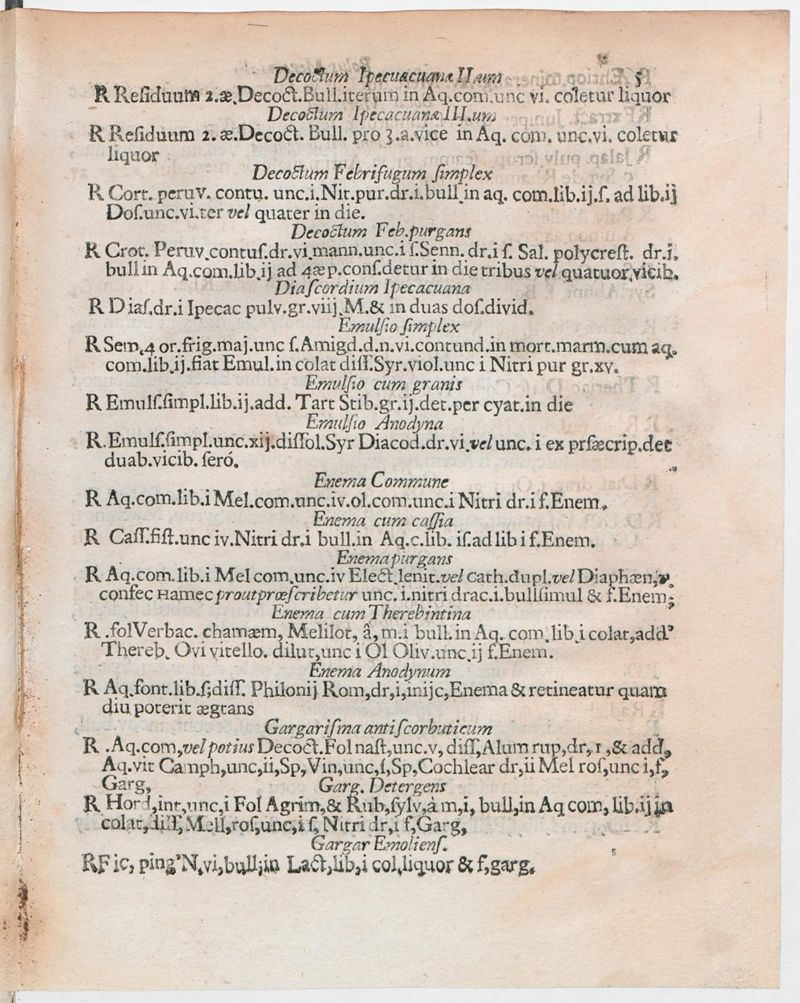 5
Decoctum Ipecuacuanæ II.um
R Reſiduum 2.æ.Decoct.Bull.iterum in Aq.com.unc vi. coletur liquor
Decoctum Ipecacuanæ III.um
R Reſiduum 2. æ.Decoct. Bull. pro 3.a.vice in Aq. com. unc.vi. coletur
liquor
Decoctum Febrifugum ſimplex
R Cort. peruv. contu. unc.i.Nit.pur.dr.i.bull in aq. com.lib.ij.ſ. ad lib.ij
Doſ.unc.vi.ter vel quater in die.
Decoctum Feb.purgans
R Crot. Peruv.contuſ.dr.vi mann.unc.i ſ.Senn. dr.i ſ. Sal. polycreſt. dr.i.
bull in Aq.com.lib.ij ad 4æ p.conſ.detur in die tribus vel quatuor vicib.
Diaſcordium Ipecacuana
R Diaſ.dr.i Ipecac pulv.gr.viij.M.& in duas doſ.divid.
Emulſio ſimplex
R Sem.4 or.frig.maj.unc ſ.Amigd.d.n.vi.contund.in mort.marm.cum aq.
com.lib.ij.fiat Emul.in colat diſſ.Syr.viol.unc i Nitri pur gr.xv.
Emulſio cum granis
R Emulſ.ſimpl.lib.ij.add. Tart Stib.gr.ij.det.per cyat.in die
Emulſio Anodyna
R.Emulſ.ſimpl.unc.xij.diſſol.Syr Diacod.dr.vi.vel unc. i ex prſæcrip.det
duab.vicib. ſeró.
Enema Commune
R Aq.com.lib.i Mel.com.unc.iv.ol.com.unc.i Nitri dr.i f.Enem.
Enema cum caſſia
R Caſſ.fiſt.unc iv.Nitri dr.i bull.in Aq.c.lib. iſ.ad lib i f.Enem.
Enema purgans
R Aq.com.lib.i Mel com.unc.iv Elect.lenit.vel Cath.dupl.vel Diaphæn,v.
confec Hamec proutpræſcribetur unc. i.nitri drac.i.bullſimul & f.Enem;
Enema cum Therebintina
R .folVerbac. chamæm, Melilot, â, m.i bull.in Aq. com.lib.i colat,add'
Thereb. Ovi vitello. dilut,unc i Ol Oliv.unc.ij f.Enem.
Enema Anodynum
R Aq.font.lib.ſ;diſſ. Philonij Rom,dr,i,inijc,Enema & retineatur quam
diu poterit ægtans
Gargariſma antiſcorbuticum
R .Aq.com,vel potius Decoct.Fol naſt,unc.v, diſſ,Alum rup,dr, 1 ,& add,
Aq.vit Camph,unc,ii,Sp,Vin,unc,ſ,Sp,Cochlear dr,ii Mel roſ,unc i,f,
Garg,
Garg. Detergens
R Hord,int,unc,i Fol Agrim,& Rub,ſylv,à m,i, bull,in Aq com, lib.ij in
colat,diſſ, Mell,roſ,unc,i ſ, Nitri dr,i f,Garg,
Gargar Emolienſ.
RFic, ping'N.vi,bull,in Lact,lib,i col,liquor & f,garg.